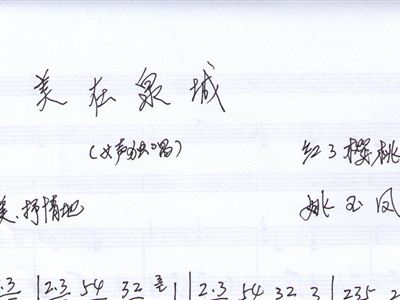 美在泉城
(女声独唱)
红了樱桃
美.抒情地
姚玉凤
2.3 | 2.3 54 32 | 2.3 54 32 3 | 235